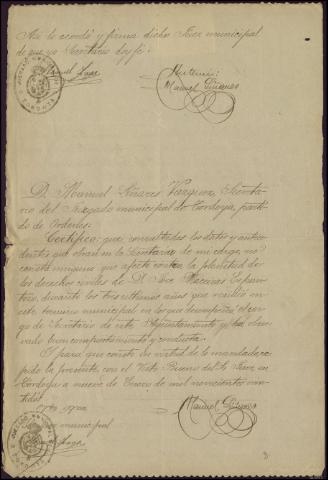 Así lo acordó y firma dicho Juez municipal
de que yo Secretario doy fé.
Manuel
Ante mí:
Manuel Liñares
D. Manuel Liñares Vazquez, Secreta-
rio del Juzgado municipal de Tordoya, parti-
do de Ordenes.
Certifico: que consultados los datos y antece-
dentes que obran en la Secretaría de mi cargo no
consta ninguno que afecte contra la plenitud de
los derechos civiles de D. José Maceiras
durante los tres últimos años que residió en
este término municipal en los que desempeña el car-
go de Secretario de este Ayuntamiento y ha obser-
vado buen comportamiento y conducta.
Y para que conste en virtud de lo mandado, ex-
pido la presente con el Visto Bueno del Sr. Juez en
Tordoya a nueve de Enero de mil novecientos
Vto. Bno.
municipal
Manuel Liñares